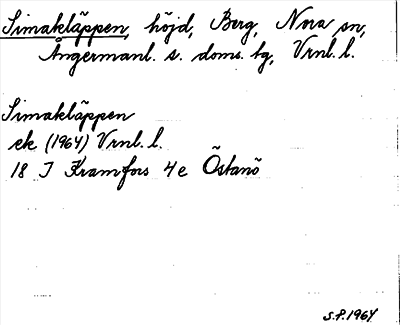 Simakläppen, höjd, Berg, Nora sn,
Ångermanl. s. doms. tg, Vrnl. l.
Simakläppen
ek (1964) Vrnl. l.
18 I Kramfors 4e Östanö
S.P. 1964